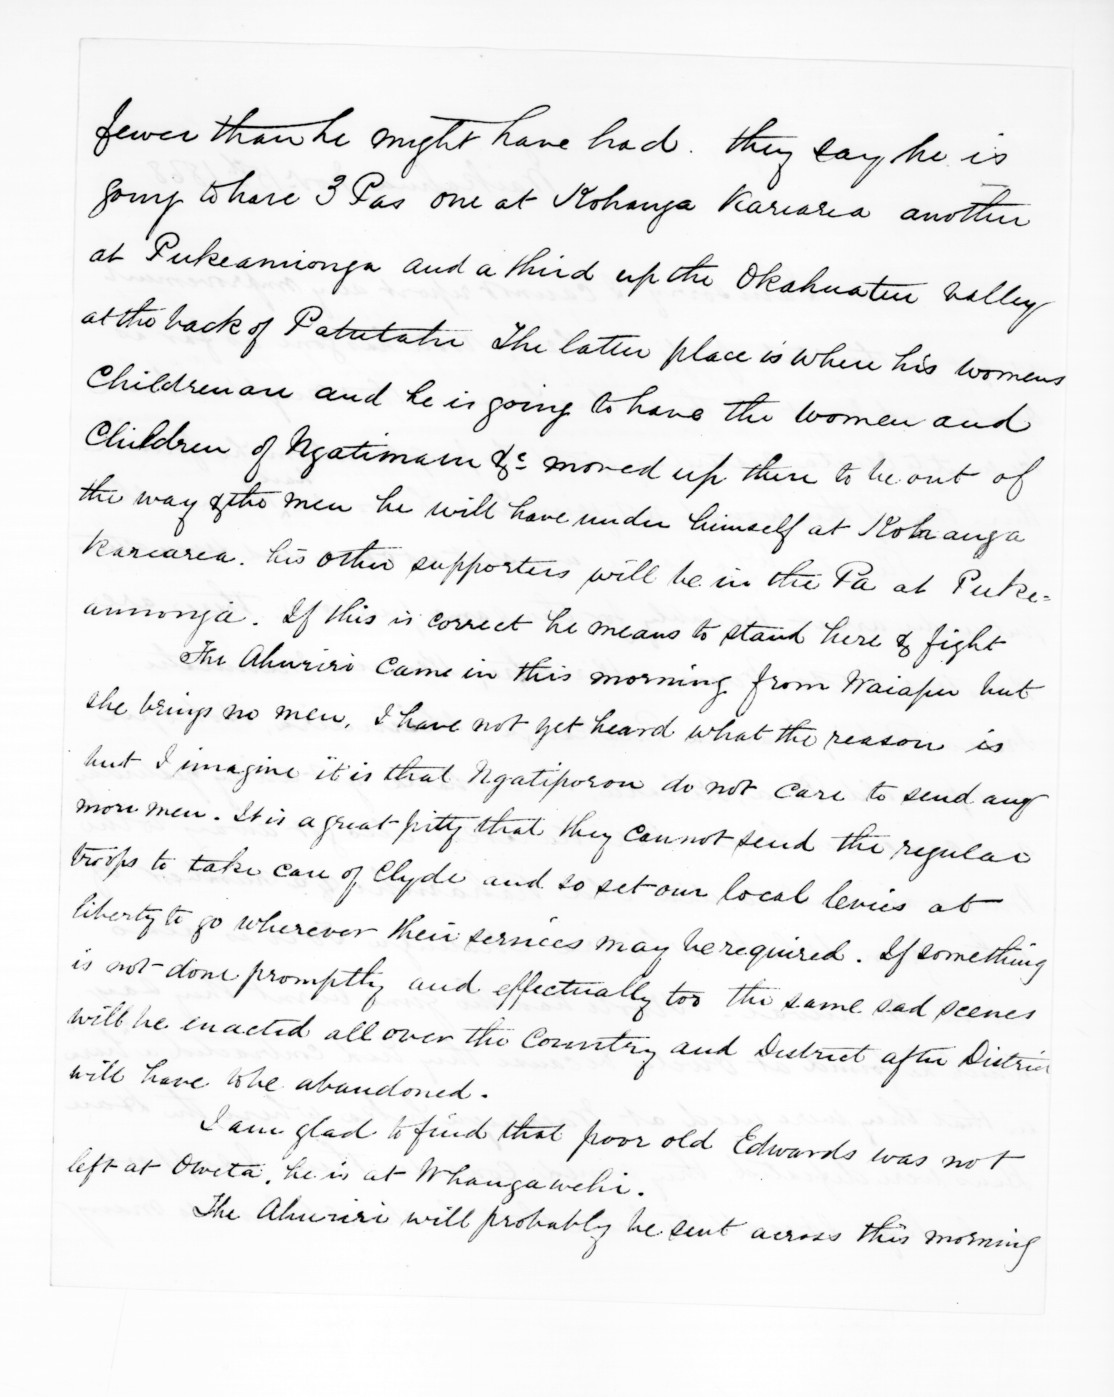 fewer than he might have had. they say he is
going to have 3 Pas one at Kohanga Karearea another
at Pukeamionga and a third up the Okahuatiu valley
at the back of Patutahi The latter place is where his womens
Children are and he is going to have the women and
Children of Ngatimaru &c moved up there to be out of
the way & the men he will have under himself at Kohanga
Karearea. his other supporters will be in the Pa at Puke=
amionga. If this is correct he means to stand here & fight
The Ahuriri came in this morning from Waiapu but
she brings no men, I have not yet heard what the reason is
but I imagine it is that Ngatiporou do not care to send any
more men. It is a great pity that they cannot send the regular
troops to take care of Clyde and so set our local levies at
liberty to go wherever their services may be required. If something
is not done promptly and effectually too the same sad scenes
will be enacted all over the Country and District after District
will have to be abandoned.
I am glad to find that poor old Edwards was not
left at Oweta, he is at Whangawehi.
The Ahuriri will probably be sent across this morning